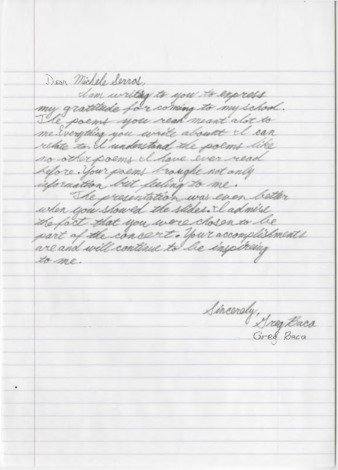 Dear Michele Serros,
I am writing to you to express
my gratitude for coming to my school.
The poems you read meant alot to
me. Everything you write aboutt I can
relate to. I understand the poems like
no other poems I have ever read
before. Your poems brought not only
information but feeling to me.
The presentation was even better
when you showed the slides. I admire
the fact that you were chosen to be
part of the concert. Your accomplishments
are and will continue to be inspireing
to me.
Sincerely,
Greg Baca
Greg Baca